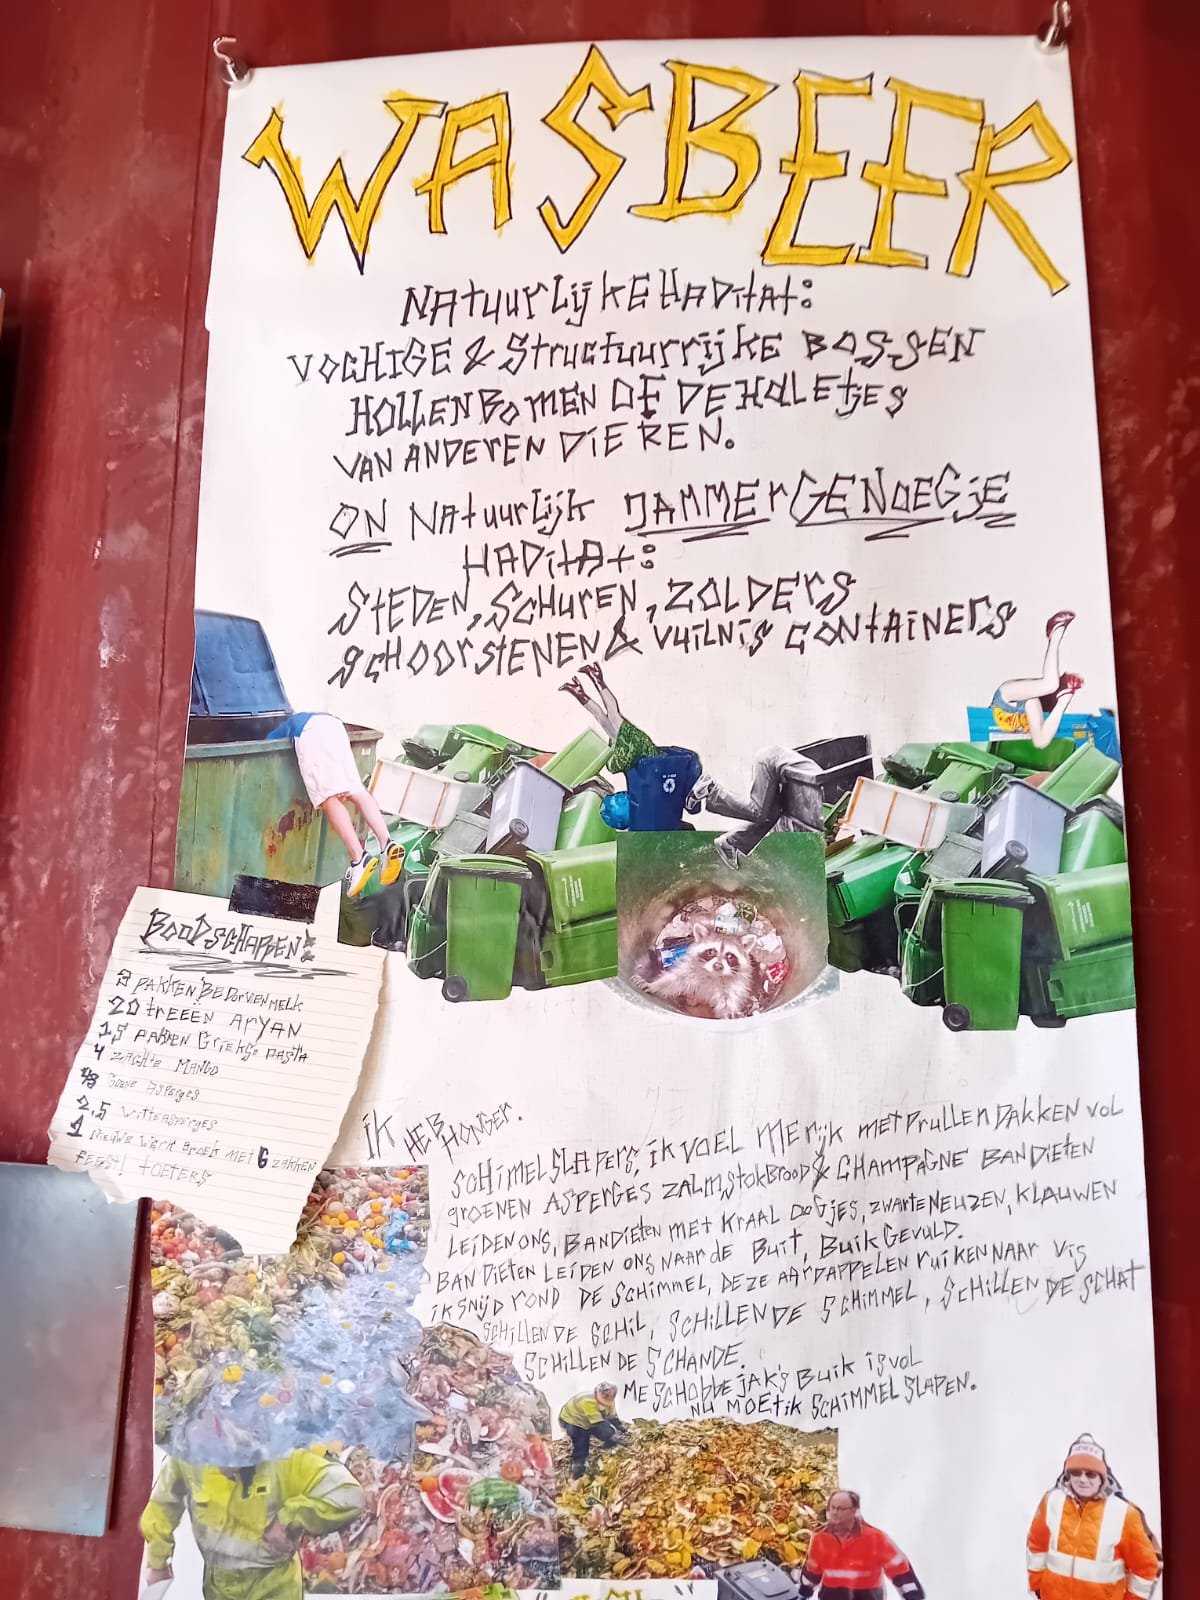 WASBEER
NAtuurLijkE HABitAt:
VOCHIGE & StructuurrijkE BOSSEN
HOLLEN BOMEN OF DE HOLETJES
VAN ANDEREN DIEREN.
ON NAtuurLijk JAMMErGENOEGjE
HABitAt:
StEDEN, SCHUrEN, ZOLDErS
SCHOOrStENEN & VUiLNiS CONtAiNErS
BOODSCHAPPEN:
3 PAKKEN BEDorVEN MELK
20 trEEEN AryAN
15 PAKKEN GriEKSE PAStA
4 ZACHtE MANGO
48 GOENE ASPErGES
2,5 WittE ASPErGES
1 NiEUWE WErK BrOEK MEt 6 ZAKKEN
FEESt! tOEtErS
iK HEB HONGEr.
SCHiMEL SLAPErS, iK VOEL ME rijK MEt PrULLENBAKKEN VOL
GrOENEN ASPErGES ZALM, StOKBrOOD & CHAMPAGNE BANDiEtEN
LEiDEN ONS, BANDiEtEN MEt KrAAL OOGJES, ZWArtE NEUZEN, KLAUWEN
BANDiEtEN LEiDEN ONS NAAr DE BUit, BUiK GEVULD.
iK SNijD rOND DE SCHiMMEL, DEZE AArDAPPELEN rUiKEN NAAr ViS
SCHiLLEN DE SCHiL, SCHiLLEN DE SCHiMMEL, SCHiLLEN DE SCHAt
SCHiLLEN DE SCHANDE.
ME SCHOBBEJAKS BUiK iS VOL
NU MOEt iK SCHiMMEL SLAPEN.